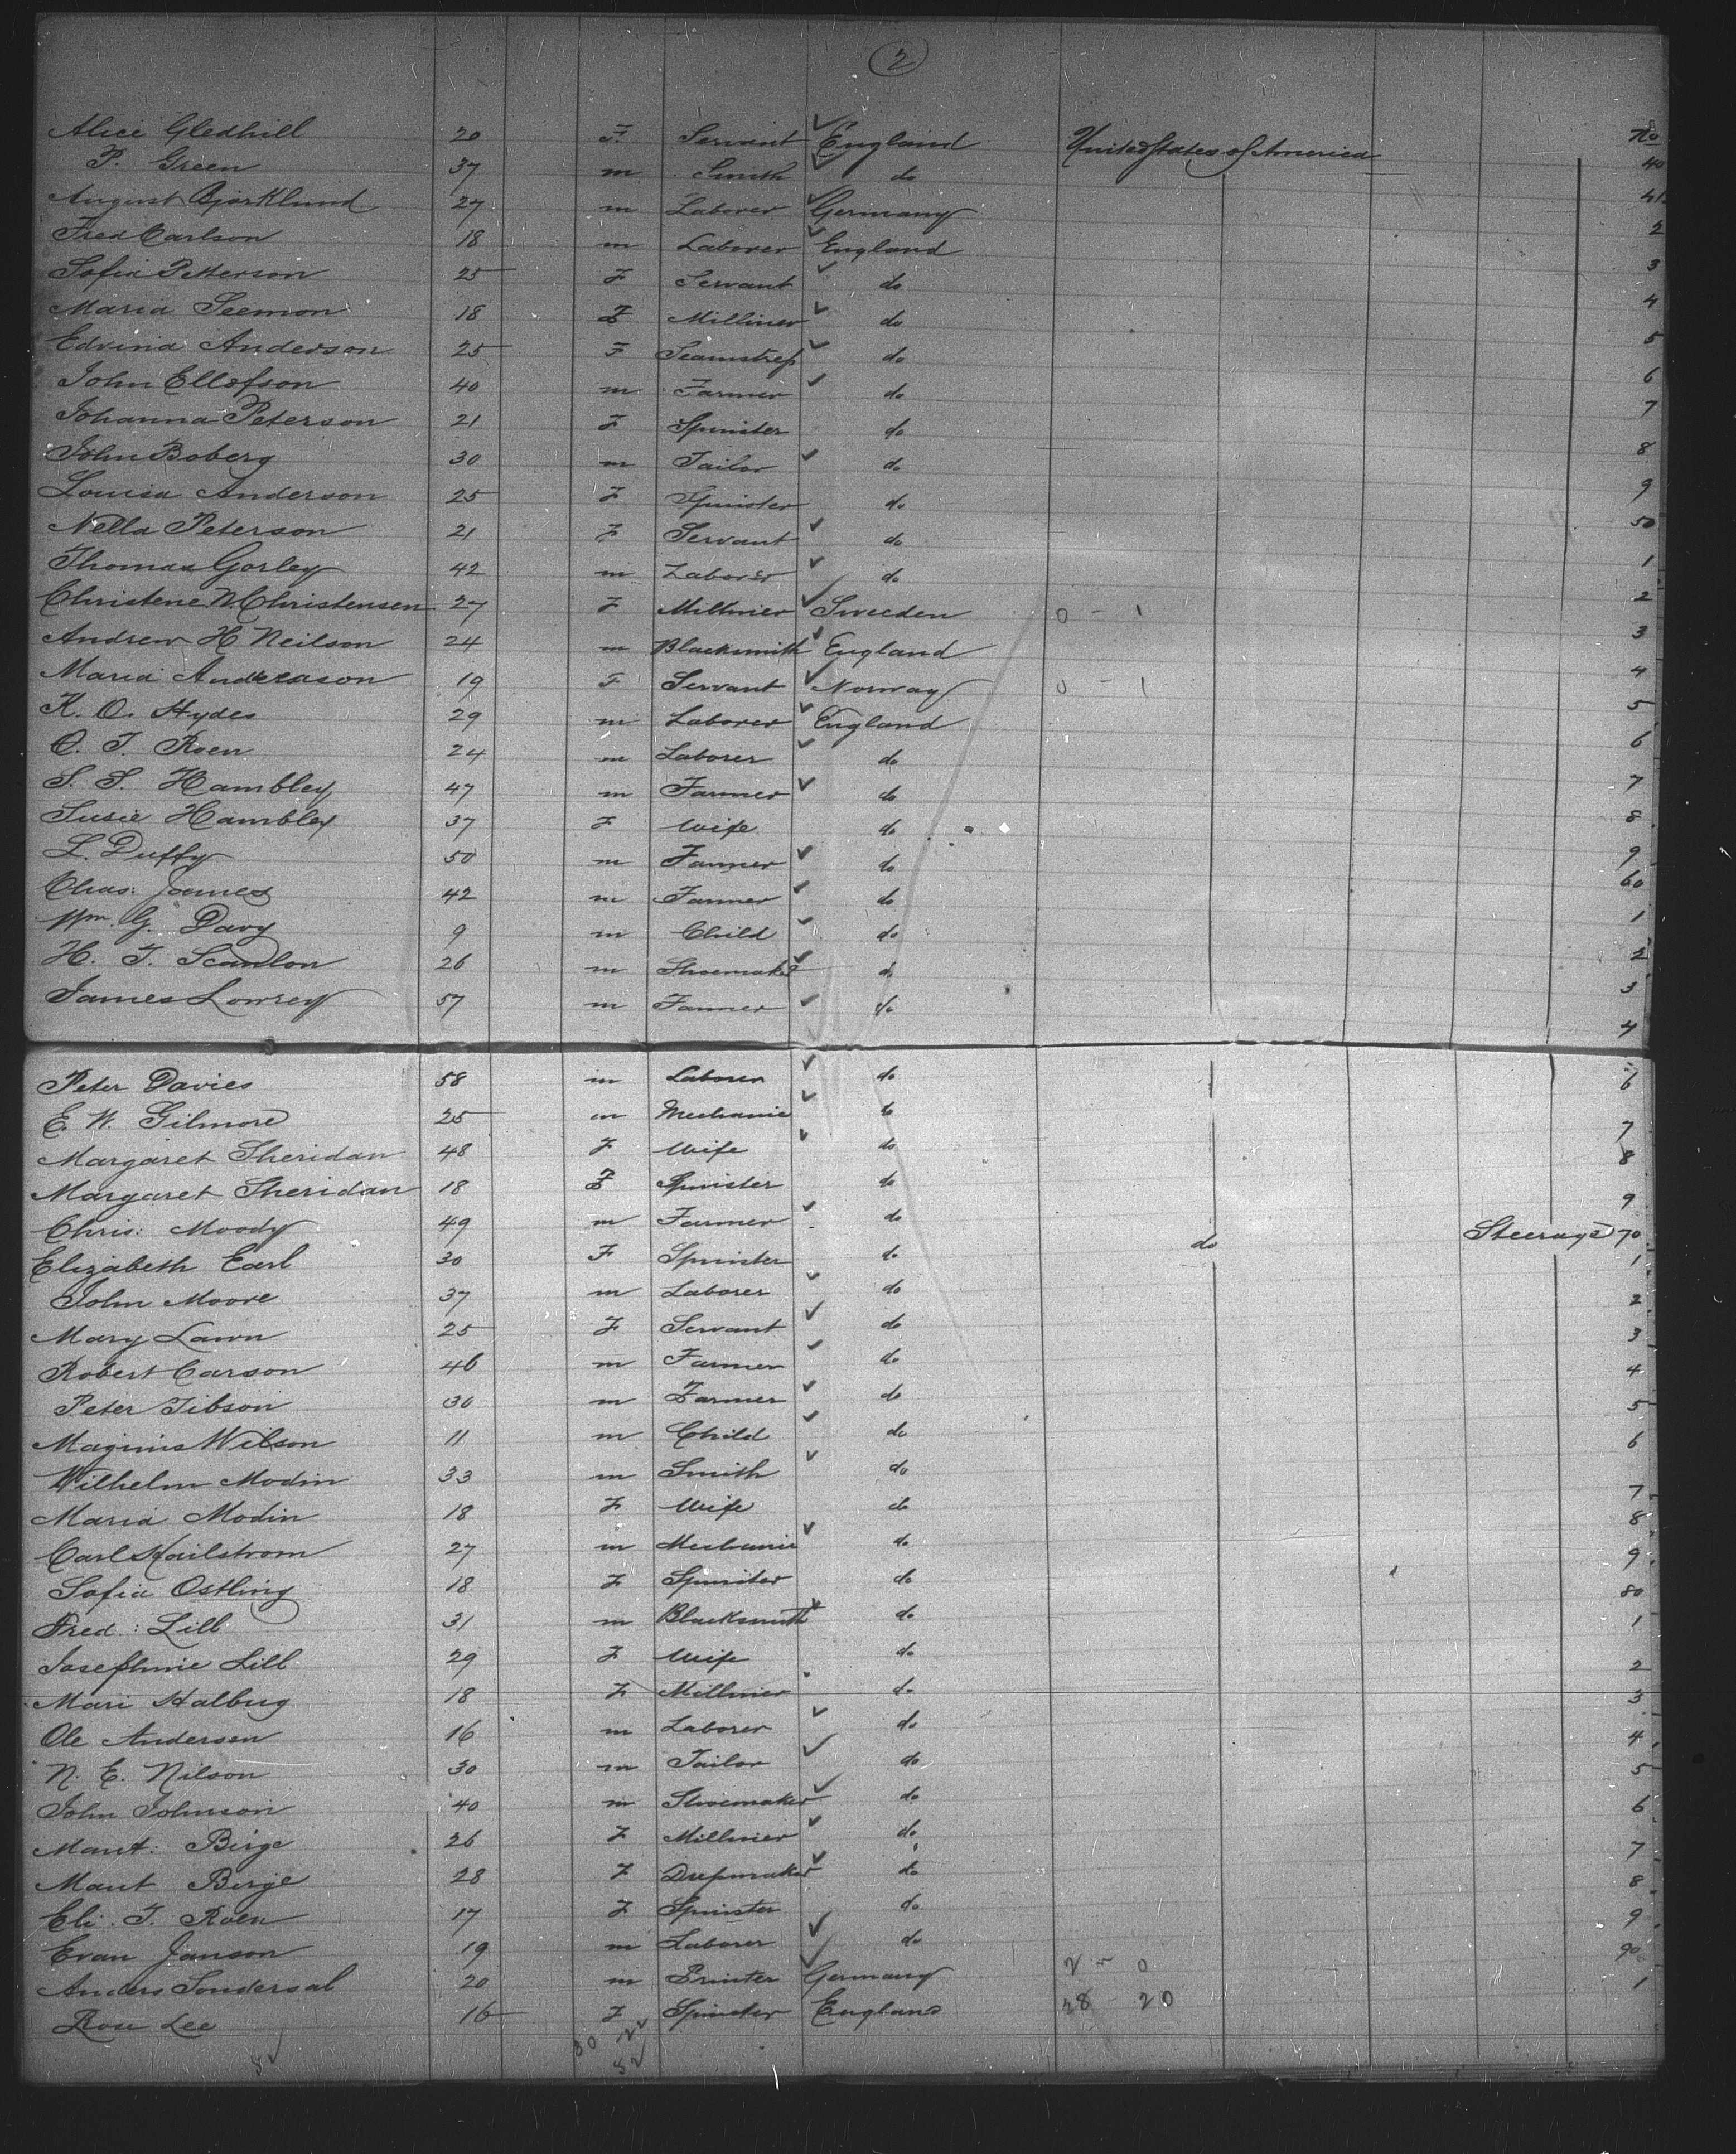 2
Alice Gledhill 20 F. Servant England United States of America No
P. Green 37 m Smith do 40
August Bjorklund 27 m Laborer Germany 41
Fred Carlson 18 m Laborer England 2
Sofia Petterson 25 F Servant do 3
Maria Seemon 18 F Milliner do 4
Edvina Anderson 25 F Seamstress do 5
John Ellofson 40 m Farmer do 6
Johanna Peterson 21 F Spinster do 7
John Boberg 30 m Tailor do 8
Louisa Anderson 25 F Spinster do 9
Nella Peterson 21 F Servant do 50
Thomas Gorley 42 m Laborer do 1
Christene N. Christensen 27 F Milliner Sweeden 0 - 1 2
Andrew H Neilson 24 m Blacksmith England 3
Maria Andreason 19 F Servant Norway 0 - 1 4
K. O. Hydes 29 m Laborer England 5
O. T. Roen 24 m Laborer do 6
S. S. Hambley 47 m Farmer do 7
Susie Hambley 37 F Wife do 8
L. Duffy 50 m Farmer do 9
Chas: James 42 m Farmer do 60
Wm. G. Davy 9 m Child do 1
H. T. Scanlon 26 m Shoemaker do 2
James Lowrey 57 m Farmer do 3
4
Peter Davies 58 m Laborer do 6
E. W. Gilmore 25 m Mechanic do 7
Margaret Sheridan 48 F Wife do 8
Margaret Sheridan 18 F Spinster do 9
Chris: Moody 49 m Farmer do do Steerage 70
Elizabeth Earl 30 F Spinster do 1
John Moore 37 m Laborer do 2
Mary Lawn 25 F Servant do 3
Robert Carson 46 m Farmer do 4
Peter Tibson 30 m Farmer do 5
Maginis Wilson 11 m Child do 6
Wilhelm Modin 33 m Smith do 7
Maria Modin 18 F Wife do 8
Carl Hailstrom 27 m Mechanic do 9
Sofia Ostling 18 F Spinster do 80
Fred: Lill 31 m Blacksmith do 1
Josephine Lill 29 F Wife do 2
Mari Halbug 18 F Milliner do 3
Ole Andersen 16 m Laborer do 4
N. E. Nilson 30 m Tailor do 5
John Johnson 40 m Shoemaker do 6
Mant: Birge 26 F Milliner do 7
Mant Berge 28 F Dressmaker do 8
Eli. T. Roen 17 F Spinster do 9
Evan Janson 19 m Laborer do 90
Anders Sondersal 20 m Printer Germany 2 - 0 1
Rose Lee 16 F Spinster England 28 - 20
30 22
52 52